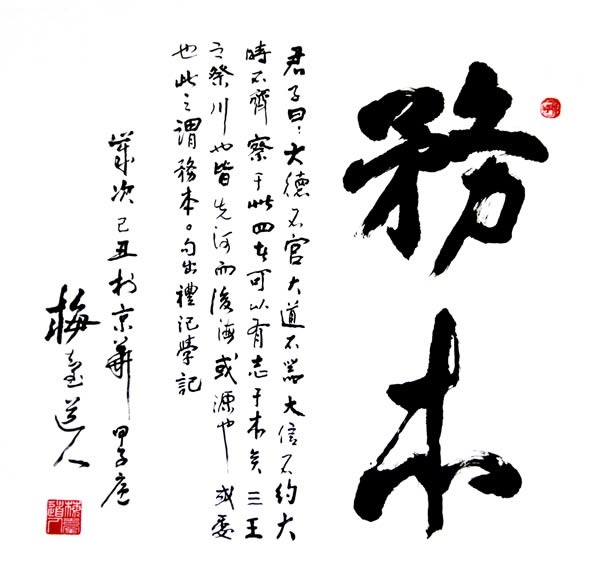 務本
君子曰:大德不官大道不器大信不約大
時不齊察于此四者可以有志于本矣三王
之祭川也皆先河而後海或源也或委
也此之謂務本。句出禮記學記
歲次己丑於京華甲子庵
梅臺道人